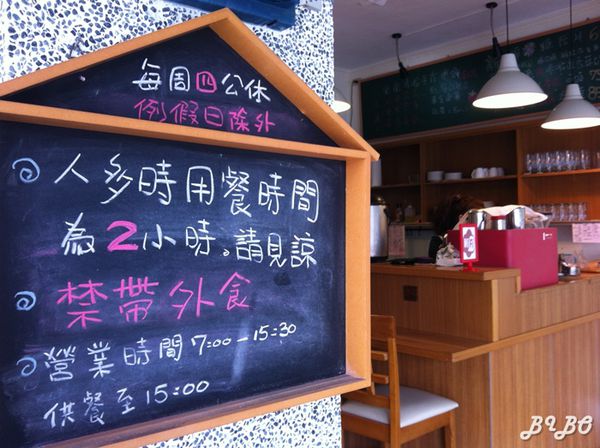 每周四公休
例假日除外
人多時用餐時間
為2小時。請見諒
禁帶外食
營業時間7:00-15:30
供餐至15:00
BIBO